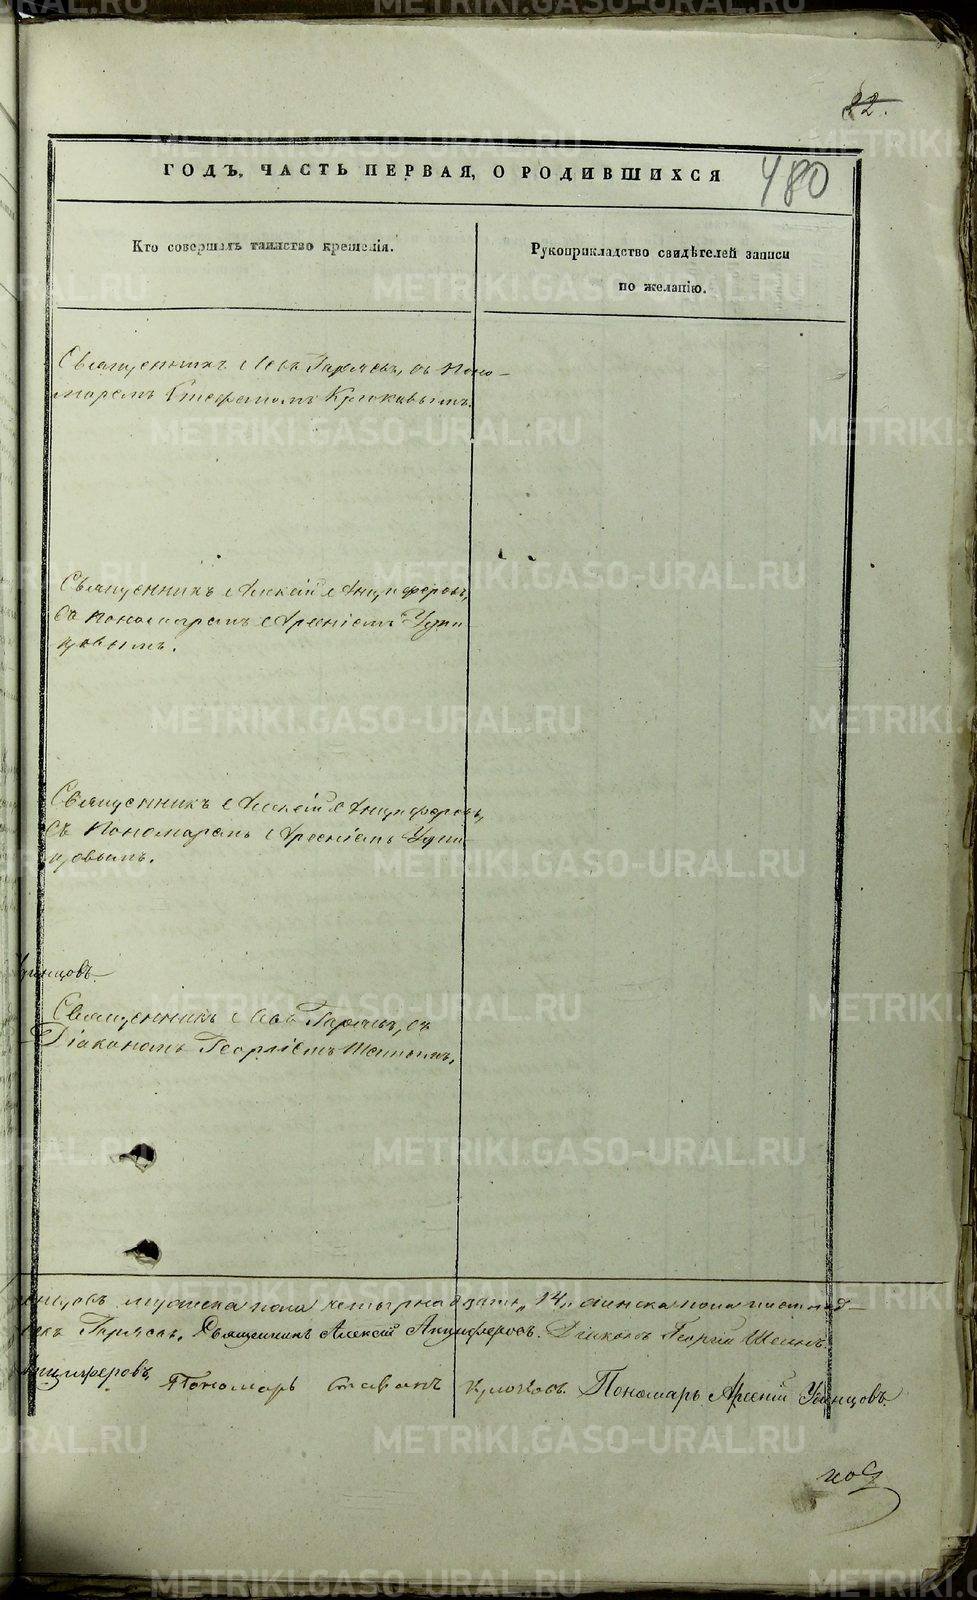 22.
480
ГОДЪ, ЧАСТЬ ПЕРВАЯ, О РОДИВШИХСЯ
Кто совершалъ таинство крещенія.
Рукоприкладство свидѣтелей записи
по желанію.
Священникъ Левъ Гаряевъ, съ Поно-
маремъ Стефаномъ Крюковымъ.
Священникъ Алексій Анциферовъ,
съ Пономаремъ Арсеніемъ Удин
цовымъ.
Священникъ Алексій Анциферовъ,
съ Пономаремъ Арсеніемъ Удин
цовымъ.
Удинцовъ.
Священникъ Левъ Гаряевъ, съ
Діакономъ Георгіемъ
мужеска пола четырнадцать „14„ женска пола
Гаряевъ. Священникъ Алексій Анциферовъ. Діаконъ Георгій
Анциферовъ. Пономарь Стефанъ Крюковъ. Пономарь Арсеній Удинцовъ.
METRIKI.GASO-URAL.RU